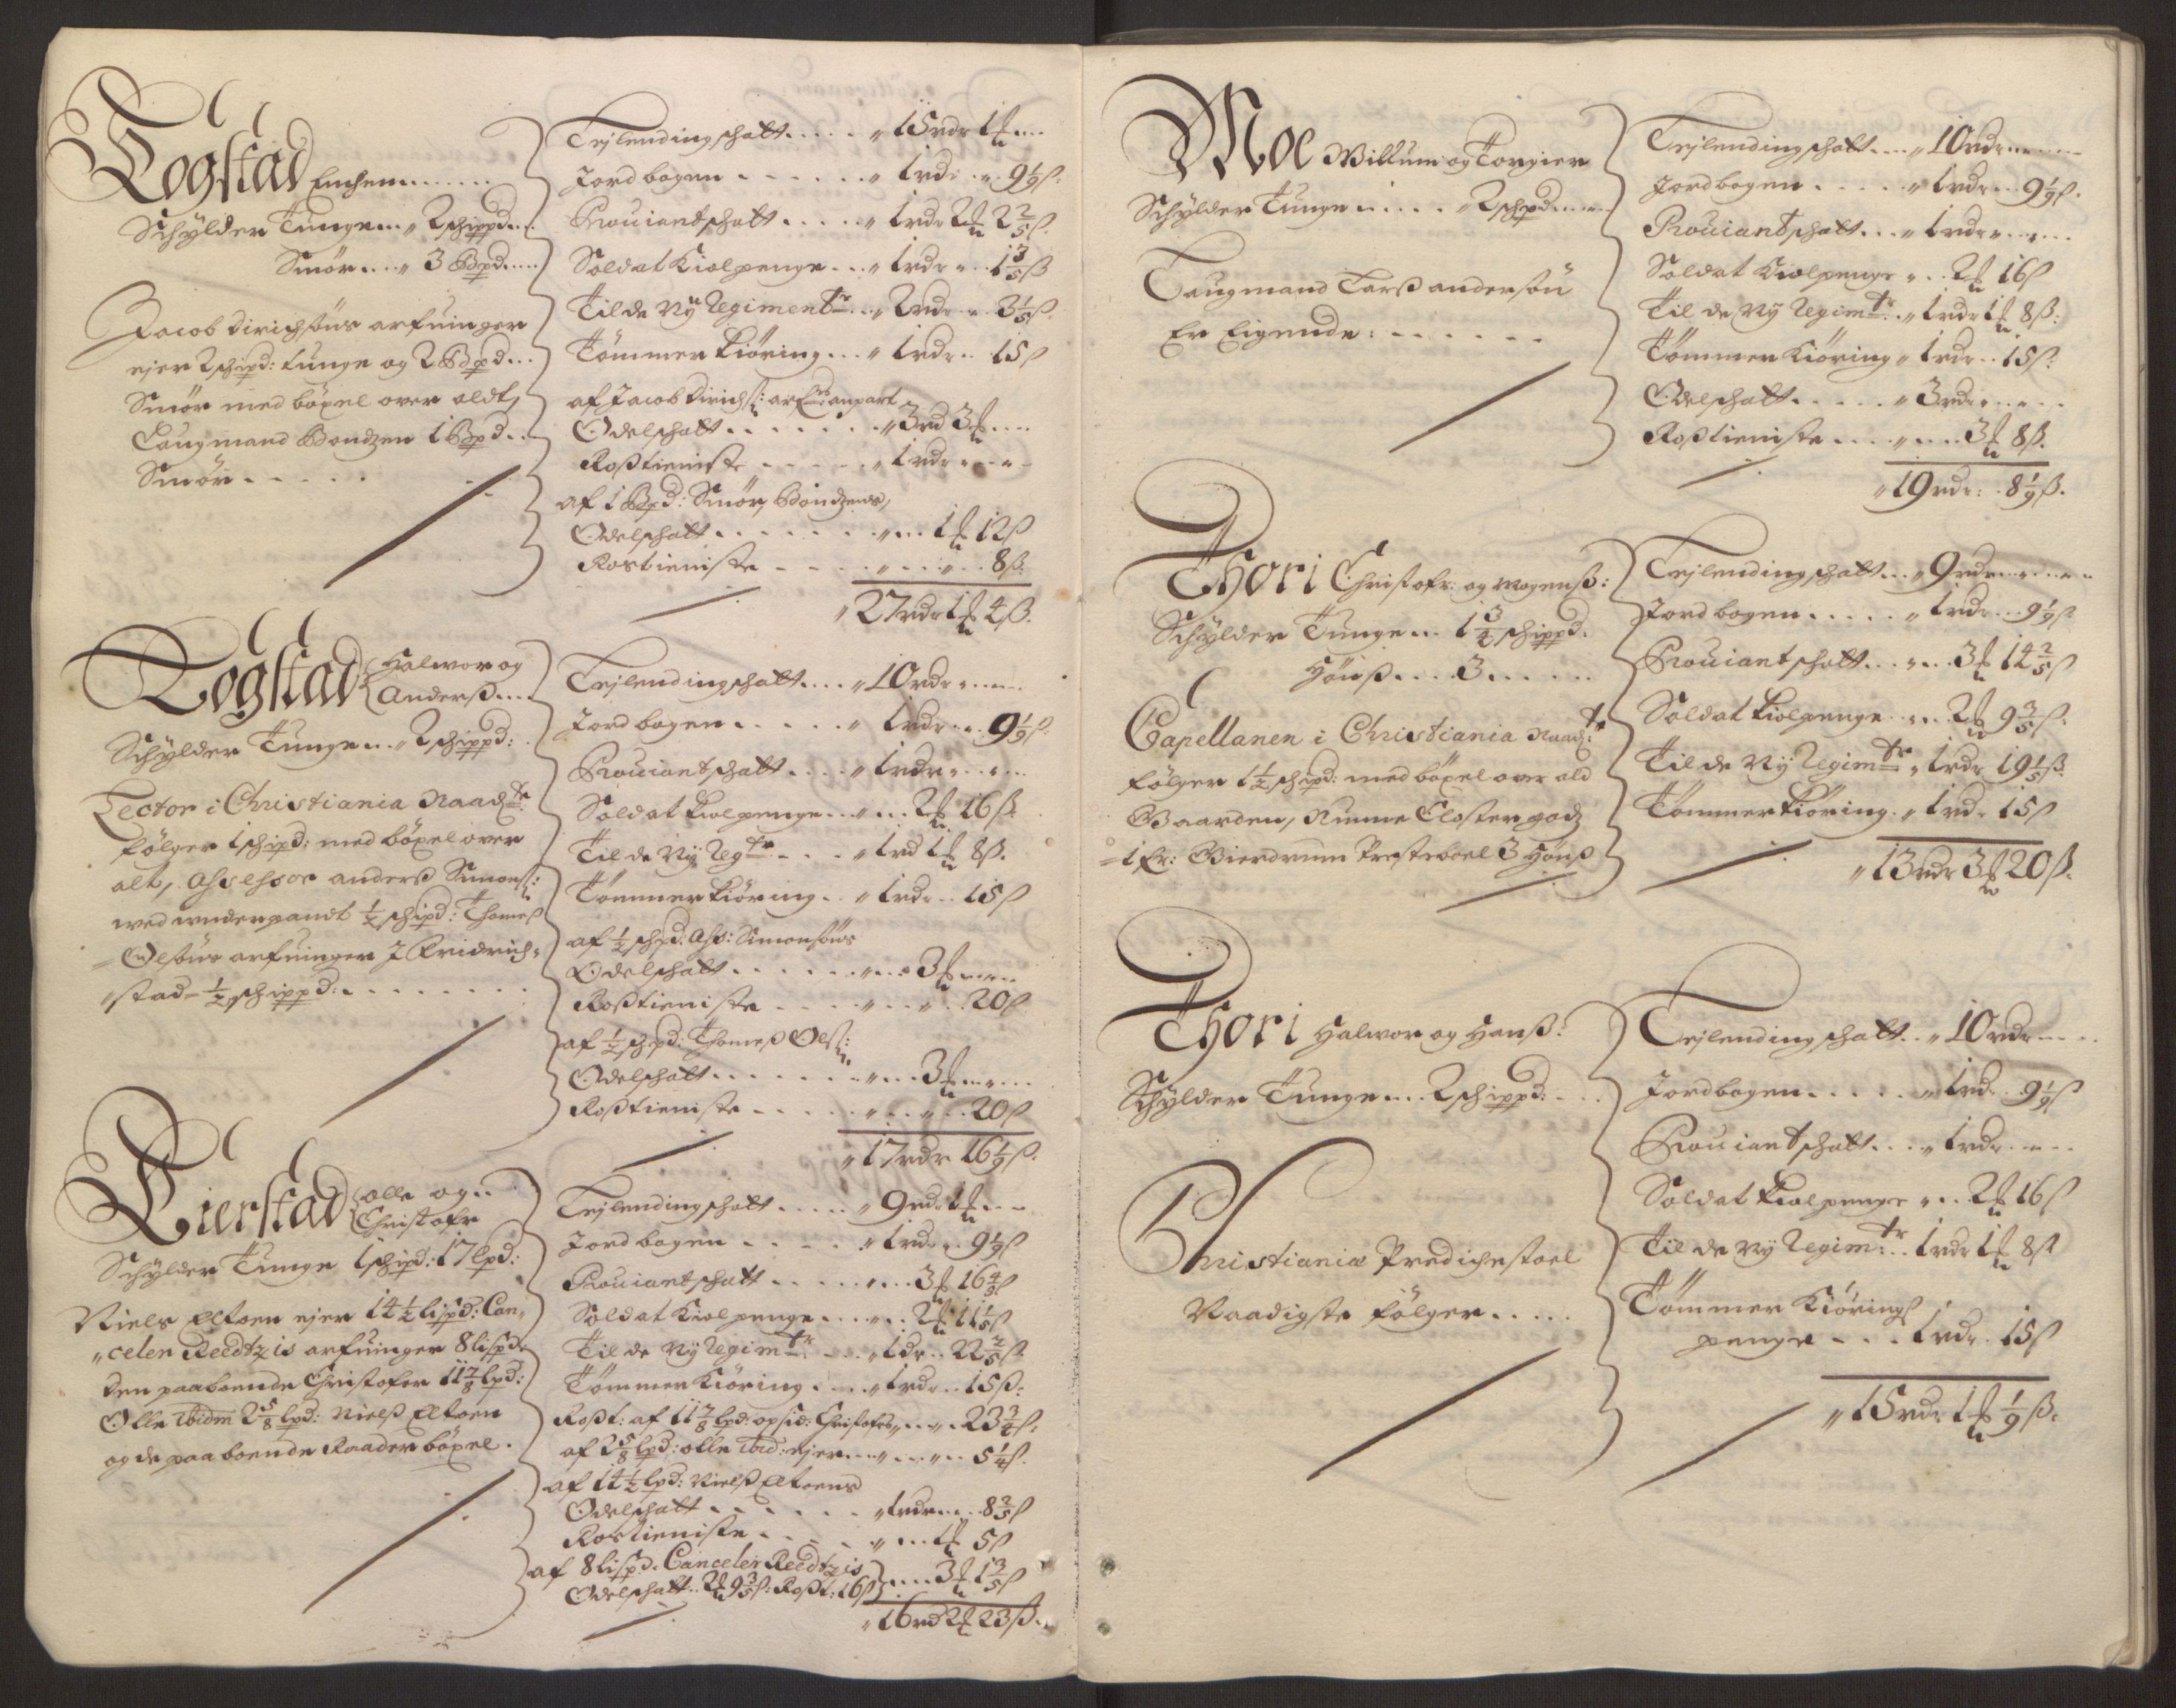 Togstad Enchen
Schÿlder Tunge 2 schippd.
Smör 3 Bdpd.
Jacob Dirichsöns arfuinger
ejer 2 schipd: tunge og 2 Bdpd
Smör med böxel over aldt,
Laugmand Bondzen 1 Bdpd
Smör
Lejlending schatt 15 rdr 1 ort
Jordbogen 1 rdr 9 1/9 ß.
Prouiantschatt 1 rdr 2 ort 2 2/5 ß.
Soldat Kiolpenge 1 rdr 1 3/5 ß
Til de Nÿ Regimentr 2 rdr 3 1/5 ß.
Tömmer kiöring 1 rdr 15 ß
af Jacob Dirichs: arf: anpart
Odelschatt 3 rd 3 ort
Roßtieniste 1 rdr
af 1 Bdpd: Smör, Bondzens,
Odelschatt 1 ort 12 ß
Rostieniste 8 ß.
27 rdr 1 ort 4 ß.
Togstad Halwor og
Anderß
Schÿlder Tunge 2 schippd:
Lector i Christiania Naadtr
følger 1 schipd: med böxel over
alt, Assessor anderß Simons:
wed underpandt 1/2 schipd: Thomeß
Olsöns arfuinger J Fridrich-
stad 1/2 schippd:
Lejlending schatt 10 rdr
Jordbogen 1 rdr 9 1/9 ß.
Prouiantschatt 1 rdr
Soldat kiolpenge 2 ort 16 ß
Til de Nÿ Regtr 1 rd 1 ort 8 ß.
Tömmer kiöring 1 rdr 15 ß
af 1/2 schpd. Ass: Simonsöns
Odelschatt 3 ort
Roßtieniste 20 ß
af 1/2 schpd: Thomeß Ols:
Odelschatt 3 ort
Roßtieniste 20 ß
17 rdr 16 1/9 ß.
Tierstad olle og
Christofr
Schÿlder Tunge 1 schipd: 17 lpd:
Niels Eltoen ejer 14 1/2 lispd: Can-
celer Reedtz is arfuinger 8 lispd.
Den paaboende Christofer 11 7/8 lpd:
Olle Ibidm 2 5/8 lpd: Nielß Eltoen
og de paaboende Raader böxel.
Lejlending schatt 9 rdr 1 ort
Jordbogen 1 rdr 9 1/9 ß
Prouiantschatt 3 ort 16 4/5 ß
Soldat Kiolpenge 2 ort 11 1/5 ß
Til de Nÿ Regimtr 1 dr 22 2/5 ß
Tömmer Kiöring 1 rdr 15 ß:
Roßt: af 11 7/8 lpd: opsid: Christofers 23 3/4 ß.
af 2 5/8 lpd: olle ibid: ejer 5 1/4 ß.
af 14 1/2 lpd: Nielß Eltoens
Odelschatt 1 rdr 8 2/5 ß
Rostieniste 1 ort 5 ß
af 8 lispd. Canceler Reedtz is
Odelschatt 2 ort 9 3/5 ß: Roßt: 16 ß 3 ort 1 3/5 ß
16 rd 2 ort 23 ß.
Moe Willum og Torgier
Schÿlder Tunge 2 schpd
Laugmand Larß andersön
Er Eigende:
Lejlending schatt 10 rdr
Jordbogen 1 rdr 9 1/9 ß.
Prouiantschatt 1 rdr
Soldat Kiolpenge 2 ort 16 ß
Til de Nÿ Regimtr 1 rdr 1 ort 8 ß:
Tömmer Kiöring 1 rdr 15 ß:
Odelschatt 3 rdr
Roßtieniste 3 ort 8 ß.
19 rdr: 8 1/9 ß.
Thori Christofr: og Mogenß:
Schÿlder Tunge 1 3/4 schippd.
Hönß 3
Capellanen i Christiania Naadtr
følger 1 1/2 schpd: med böxel over ald
Gaarden, Nunne Closter godz
1 fr: Gierdrum Presteboel 3 Hönß
Lejlending schatt 9 rdr
Jordbogen 1 rdr 9 1/9 ß
Prouiantschatt 3 ort 14 2/5 ß
Soldat kiolpenge 2 ort 9 3/5 ß.
Til de Nÿ Regimtr 1 rdr 19 1/5 ß.
Tömmer kiöring 1 rd. 15 ß
13 rdr 3 ort 20 ß.
Thori Halwor og Hanß:
Schÿlder Tunge 2 schippd:
Christiania Predichestoel
Naadigste følger
Lejlending schatt 10 rdr
Jordbogen 1 rd 9 1/9 ß
Prouiantschatt 1 rdr
Soldat kiolpenge 2 ort 16 ß
Til de Nÿ Regim:tr 1 rdr 1 ort 8 ß
Tömmer Kiörings
penge 1 rdr. 15 ß
15 rdr 1 ort 1/9 ß.